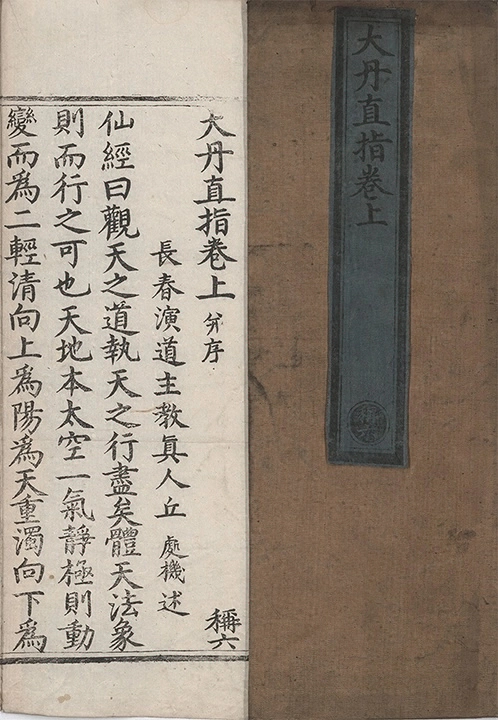 大丹直指卷上
大丹直指卷上 并序
稱六
長春演道主教眞人丘 處機述
仙經曰觀天之道執天之行盡矣體天法象
則而行之可也天地本太空一氣靜極則動
變而爲二輕清向上爲陽爲天重濁向下爲